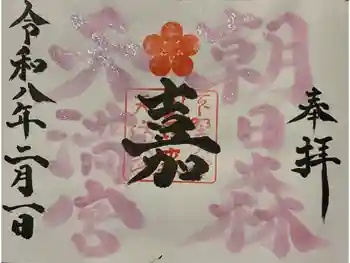 奉拝
朝日森
天満宮
嘉
令和八年二月一日